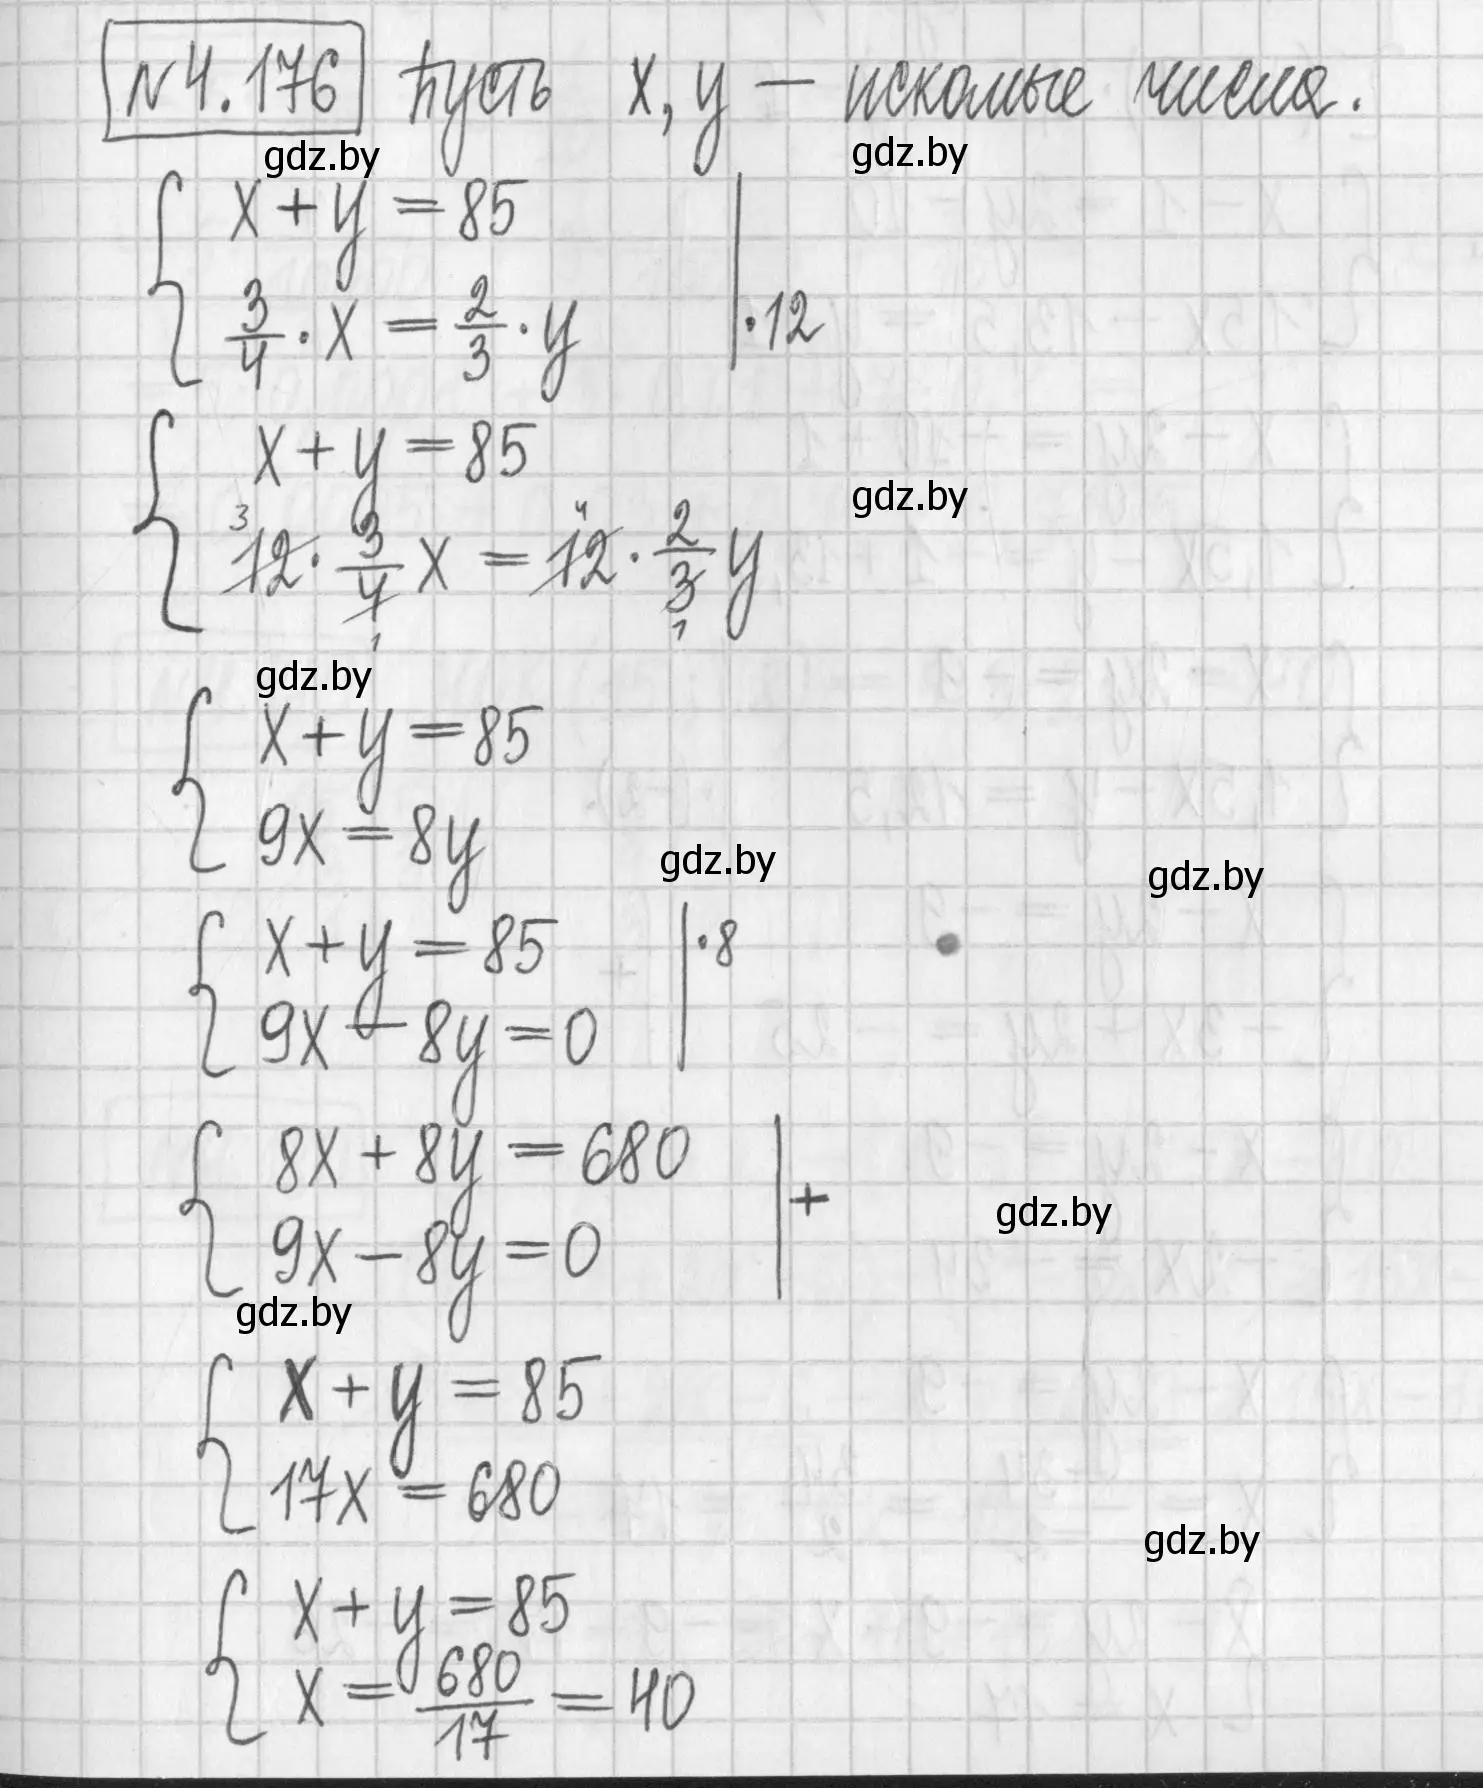 №4.176 Пусть x, y — искомые числа.
gdz.by gdz.by
x + y = 85
3/4 · x = 2/3 · y | · 12
x + y = 85
gdz.by
3 4
12 · 3/4 x = 12 · 2/3 y
1 1
gdz.by
x + y = 85
9x = 8y
gdz.by gdz.by
x + y = 85 | · 8
9x − 8y = 0
8x + 8y = 680 | +
gdz.by
9x − 8y = 0
gdz.by
x + y = 85
17x = 680
gdz.by
x + y = 85
x = 680/17 = 40